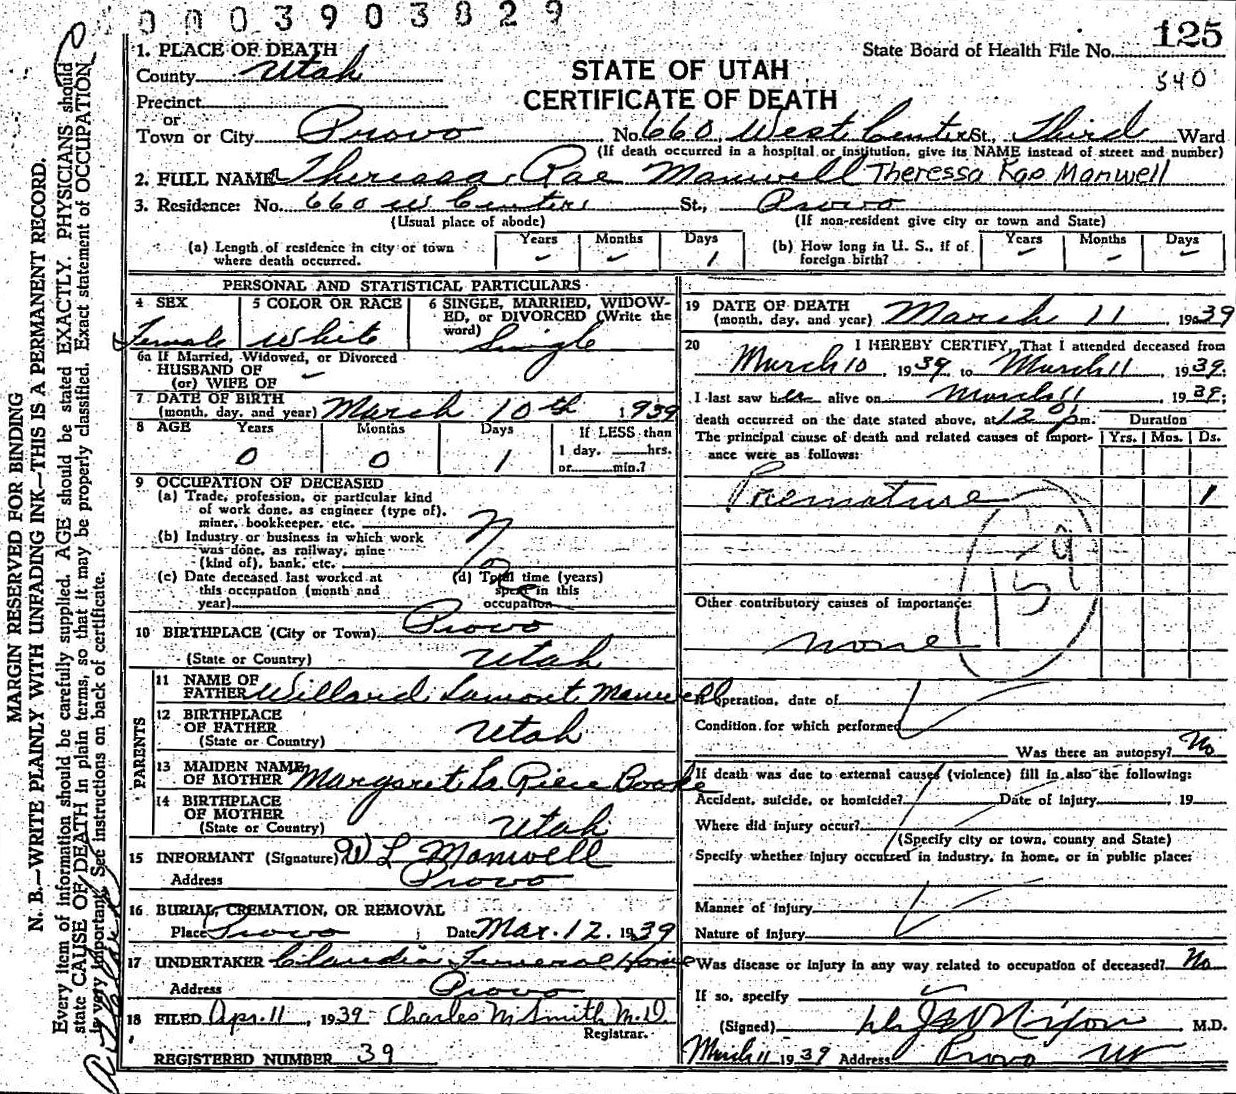 0003903829
125
540
State Board of Health File No.
1. PLACE OF DEATH
County Utah
Precinct
or
Town or City Provo
STATE OF UTAH
CERTIFICATE OF DEATH
No. 660 West Center St., Third Ward
(If death occurred in a hospital or institution, give its NAME instead of street and number)
2. FULL NAME Theressa Rae Manwell Theressa Rae Manwell
3. Residence: No. 660 W Center St., Provo
(Usual place of abode) (If non-resident give city or town and State)
(a) Length of residence in city or town where death occurred. Years - Months - Days 1
(b) How long in U. S., if of foreign birth? Years - Months - Days -
PERSONAL AND STATISTICAL PARTICULARS
4 SEX Female
5 COLOR OR RACE White
6 SINGLE, MARRIED, WIDOWED, or DIVORCED (Write the word) Single
6a If Married, Widowed, or Divorced
HUSBAND OF
(or) WIFE OF -
7 DATE OF BIRTH
(month, day, and year) March 10th 1939
8 AGE Years 0 Months 0 Days 1
If LESS than
1 day, hrs.
or min.?
9 OCCUPATION OF DECEASED
(a) Trade, profession, or particular kind
of work done, as engineer (type of),
miner, bookkeeper, etc.
(b) Industry or business in which work
was done, as railway, mine
(kind of), bank, etc.
(c) Date deceased last worked at
this occupation (month and
year)
(d) Total time (years)
spent in this
occupation
10 BIRTHPLACE (City or Town) Provo
(State or Country) Utah
PARENTS
11 NAME OF
FATHER Willard Lamont Manwell
12 BIRTHPLACE
OF FATHER
(State or Country) Utah
13 MAIDEN NAME
OF MOTHER Margaret La Riece Booke
14 BIRTHPLACE
OF MOTHER
(State or Country) Utah
15 INFORMANT (Signature) W L Manwell
Address Provo
16 BURIAL, CREMATION, OR REMOVAL
Place Provo ; Date Mar. 12, 1939
17 UNDERTAKER Claudin Funeral Home
Address Provo
18 FILED Apr. 11, 1939 Charles M Smith M.D.
Registrar.
REGISTERED NUMBER 39
19 DATE OF DEATH
(month, day, and year) March 11, 1939
20 I HEREBY CERTIFY, That I attended deceased from
March 10, 1939, to March 11, 1939;
I last saw her alive on March 11, 1939;
death occurred on the date stated above, at 12 01 pm.
The principal cause of death and related causes of importance were as follows:
Duration
Yrs. Mos. Ds.
Premature 1
159
Other contributory causes of importance:
none
If operation, date of
Condition for which performed
Was there an autopsy? No
If death was due to external causes (violence) fill in also the following:
Accident, suicide, or homicide? Date of injury , 19
Where did injury occur?
(Specify city or town, county and State)
Specify whether injury occurred in industry, in home, or in public place:
Manner of injury
Nature of injury
Was disease or injury in any way related to occupation of deceased? No
If so, specify
(Signed) Nixon M.D.
March 11 1939 Address Provo Ut
MARGIN RESERVED FOR BINDING
N. B.—WRITE PLAINLY WITH UNFADING INK—THIS IS A PERMANENT RECORD.
Every item of information should be carefully supplied. AGE should be stated EXACTLY. PHYSICIANS should
state CAUSE OF DEATH in plain terms, so that it may be properly classified. Exact statement of OCCUPATION
is very important. See instructions on back of certificate.